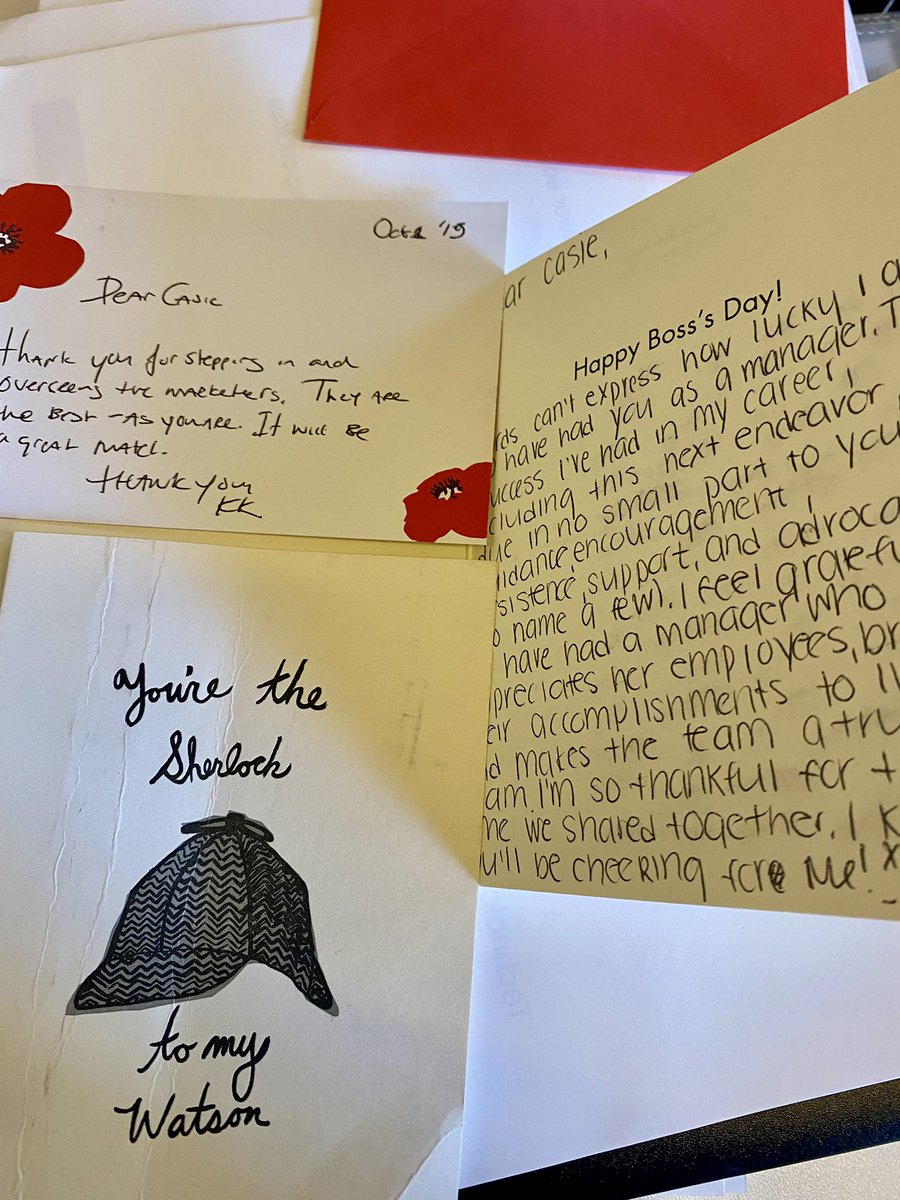 Oct 2 '19
Dear Casie
thank you for stepping in and
overseeing the marketers. They are
the Best - As you are. It will be
a great match.
thank you
KK
You're the
Sherlock
to my
Watson
ar casie,
Happy Boss's Day!
rds can't express how lucky I a
have had you as a manager. T
uccess I've had in my career,
cluding this next endeavor
e in no small part to you
idance, encouragement,
sistence, support, and advoca
o name a few). I feel grateful
have had a manager who
preciates her employees, br
eir accomplishments to li
d makes the team a tru
am. I'm so thankful for t
me we shared together. I k
u'll be cheering for me! x